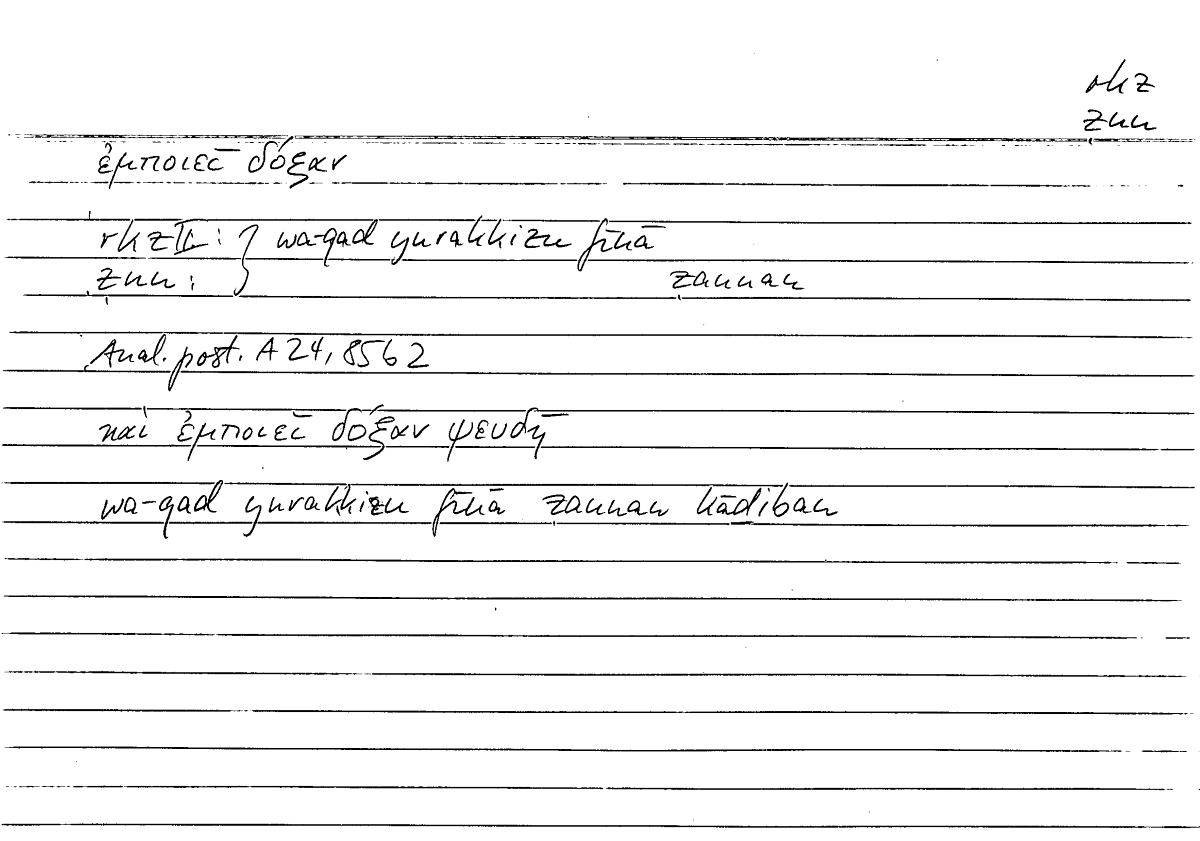 rkz
ẓnn
ἐμποιεῖ δόξαν
rkz II : } wa-qad yurakkizu fīhā
ẓnn : ẓannan
Anal. post. A 24, 85b2
καὶ ἐμποιεῖ δόξαν ψευδῆ
wa-qad yurakkizu fīhā ẓannan kāḏiban